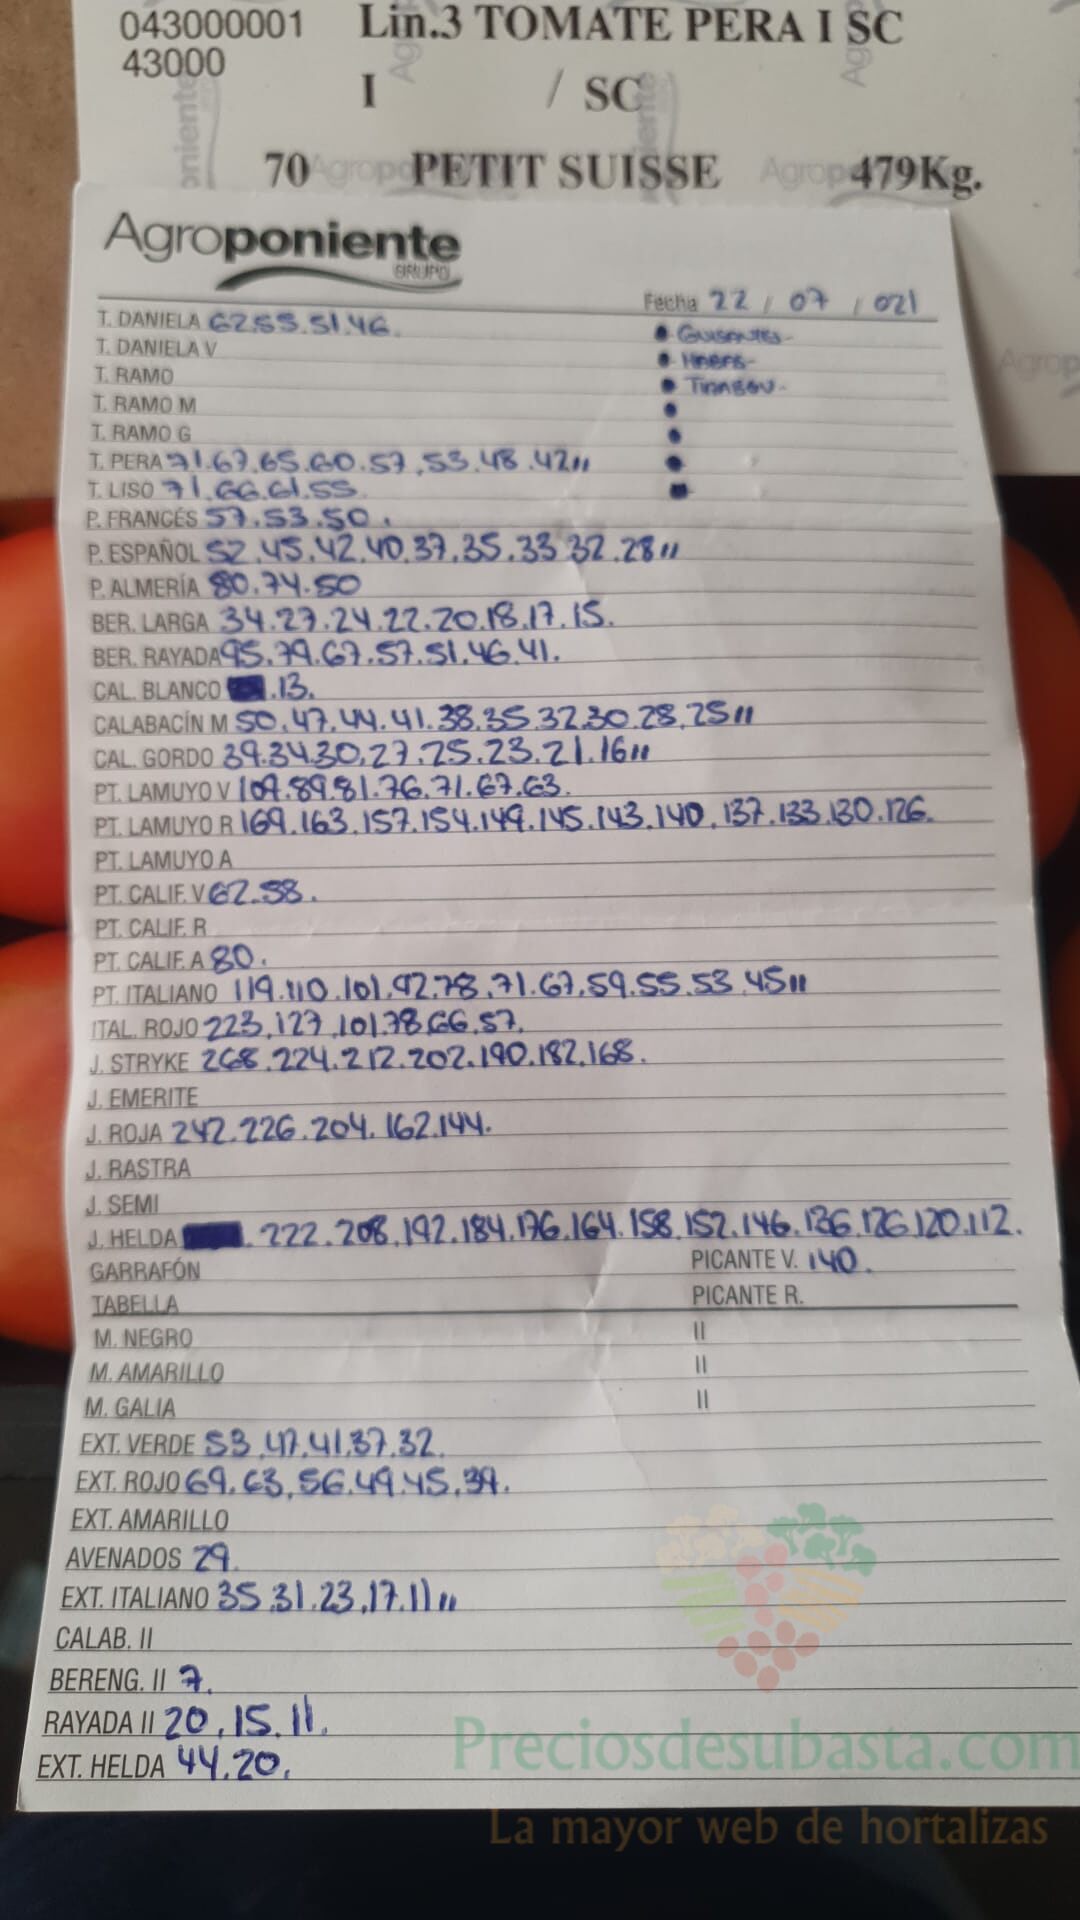 043000001 Lin.3 TOMATE PERA I SC
43000
I / SC
70 PETIT SUISSE 479Kg.
Agroponiente
GRUPO
Fecha 22 / 07 / 021
T. DANIELA 62.55.51.46.
• GUISANTES-
T. DANIELA V
• HABAS-
T. RAMO
• TIRABEQU-
T. RAMO M
T. RAMO G
T. PERA 71.67.65.60.57.53.48.42"
T. LISO 71.66.61.55.
P. FRANCÉS 57.53.50.
P. ESPAÑOL 52.45.42.40.37.35.33.32.28"
P. ALMERÍA 80.74.50
BER. LARGA 34.27.24.22.20.18.17.15.
BER. RAYADA 95.79.67.57.51.46.41.
CAL. BLANCO .13.
CALABACÍN M 50.47.44.41.38.35.32.30.28.25"
CAL. GORDO 39.34.30.27.25.23.21.16"
PT. LAMUYO V 109.89.81.76.71.67.63.
PT. LAMUYO R 169.163.157.154.149.145.143.140.137.133.130.126.
PT. LAMUYO A
PT. CALIF. V 62.58.
PT. CALIF. R
PT. CALIF. A 80.
PT. ITALIANO 119.110.101.92.78.71.67.59.55.53.45"
ITAL. ROJO 223.127.101.78.66.57.
J. STRYKE 268.224.212.202.190.182.168.
J. EMERITE
J. ROJA 242.226.204.162.144.
J. RASTRA
J. SEMI
J. HELDA .222.208.192.184.176.164.158.152.146.136.126.120.112.
GARRAFÓN PICANTE V. 140.
TABELLA PICANTE R.
M. NEGRO II
M. AMARILLO II
M. GALIA II
EXT. VERDE 53.47.41.37.32.
EXT. ROJO 69.63.56.49.45.39.
EXT. AMARILLO
AVENADOS 29.
EXT. ITALIANO 35.31.23.17.11"
CALAB. II
BERENG. II 7.
RAYADA II 20.15.11.
EXT. HELDA 44.20.
Preciosdesubasta.com
La mayor web de hortalizas